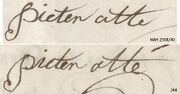 pieter atte
WAM 2568/40
pieter atte
J44